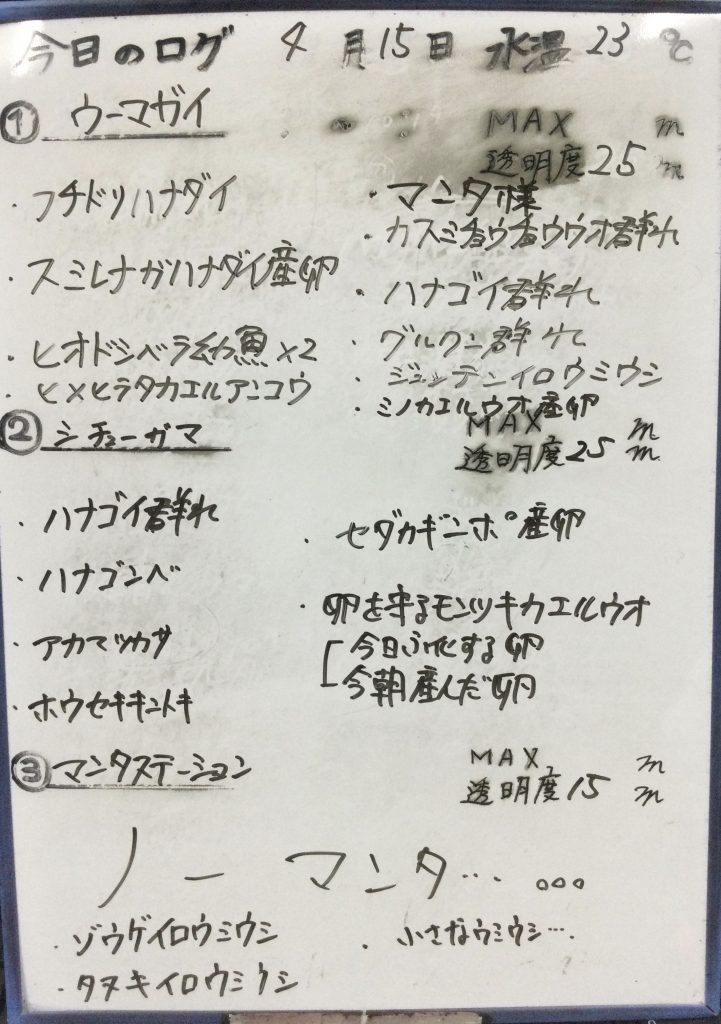 今日のログ 4月15日 水温23℃
① ウーマガイ
MAX m
透明度25m
・フチドリハナダイ
・スミレナガハナダイ産卵
・ヒオドシベラ幼魚×2
・ヒメヒラタカエルアンコウ
・マンタ様
・カスミチョウチョウウオ群れ
・ハナゴイ群れ
・グルクン群れ
・ジュッテンイロウミウシ
・ミノカエルウオ産卵
② シチューガマ
MAX m
透明度25m
・ハナゴイ群れ
・ハナゴンベ
・アカマツカサ
・ホウセキキントキ
・セダカギンポ産卵
・卵を守るモンツキカエルウオ
今日ふ化する卵
今朝産んだ卵
③ マンタステーション
MAX m
透明度15m
ノーマンタ…。。。
・ゾウゲイロウミウシ
・タヌキイロウミウシ
・小さなウミウシ…